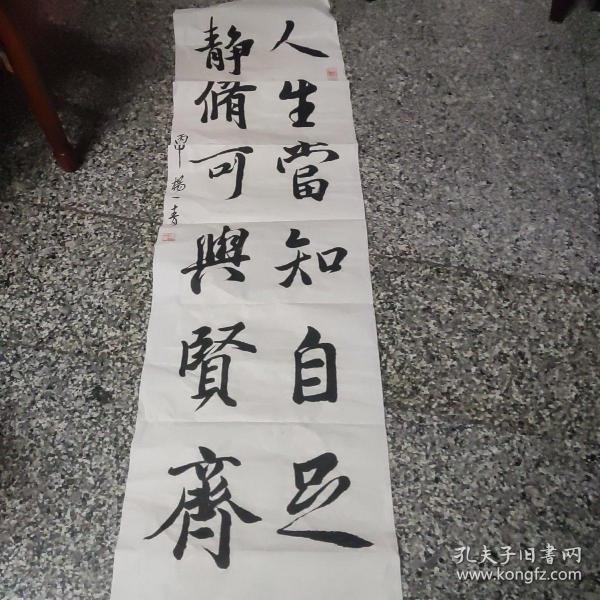 人生當知自足
静脩可與賢齊
丙申 楊一
孔夫子旧書网
www.kongfz.com